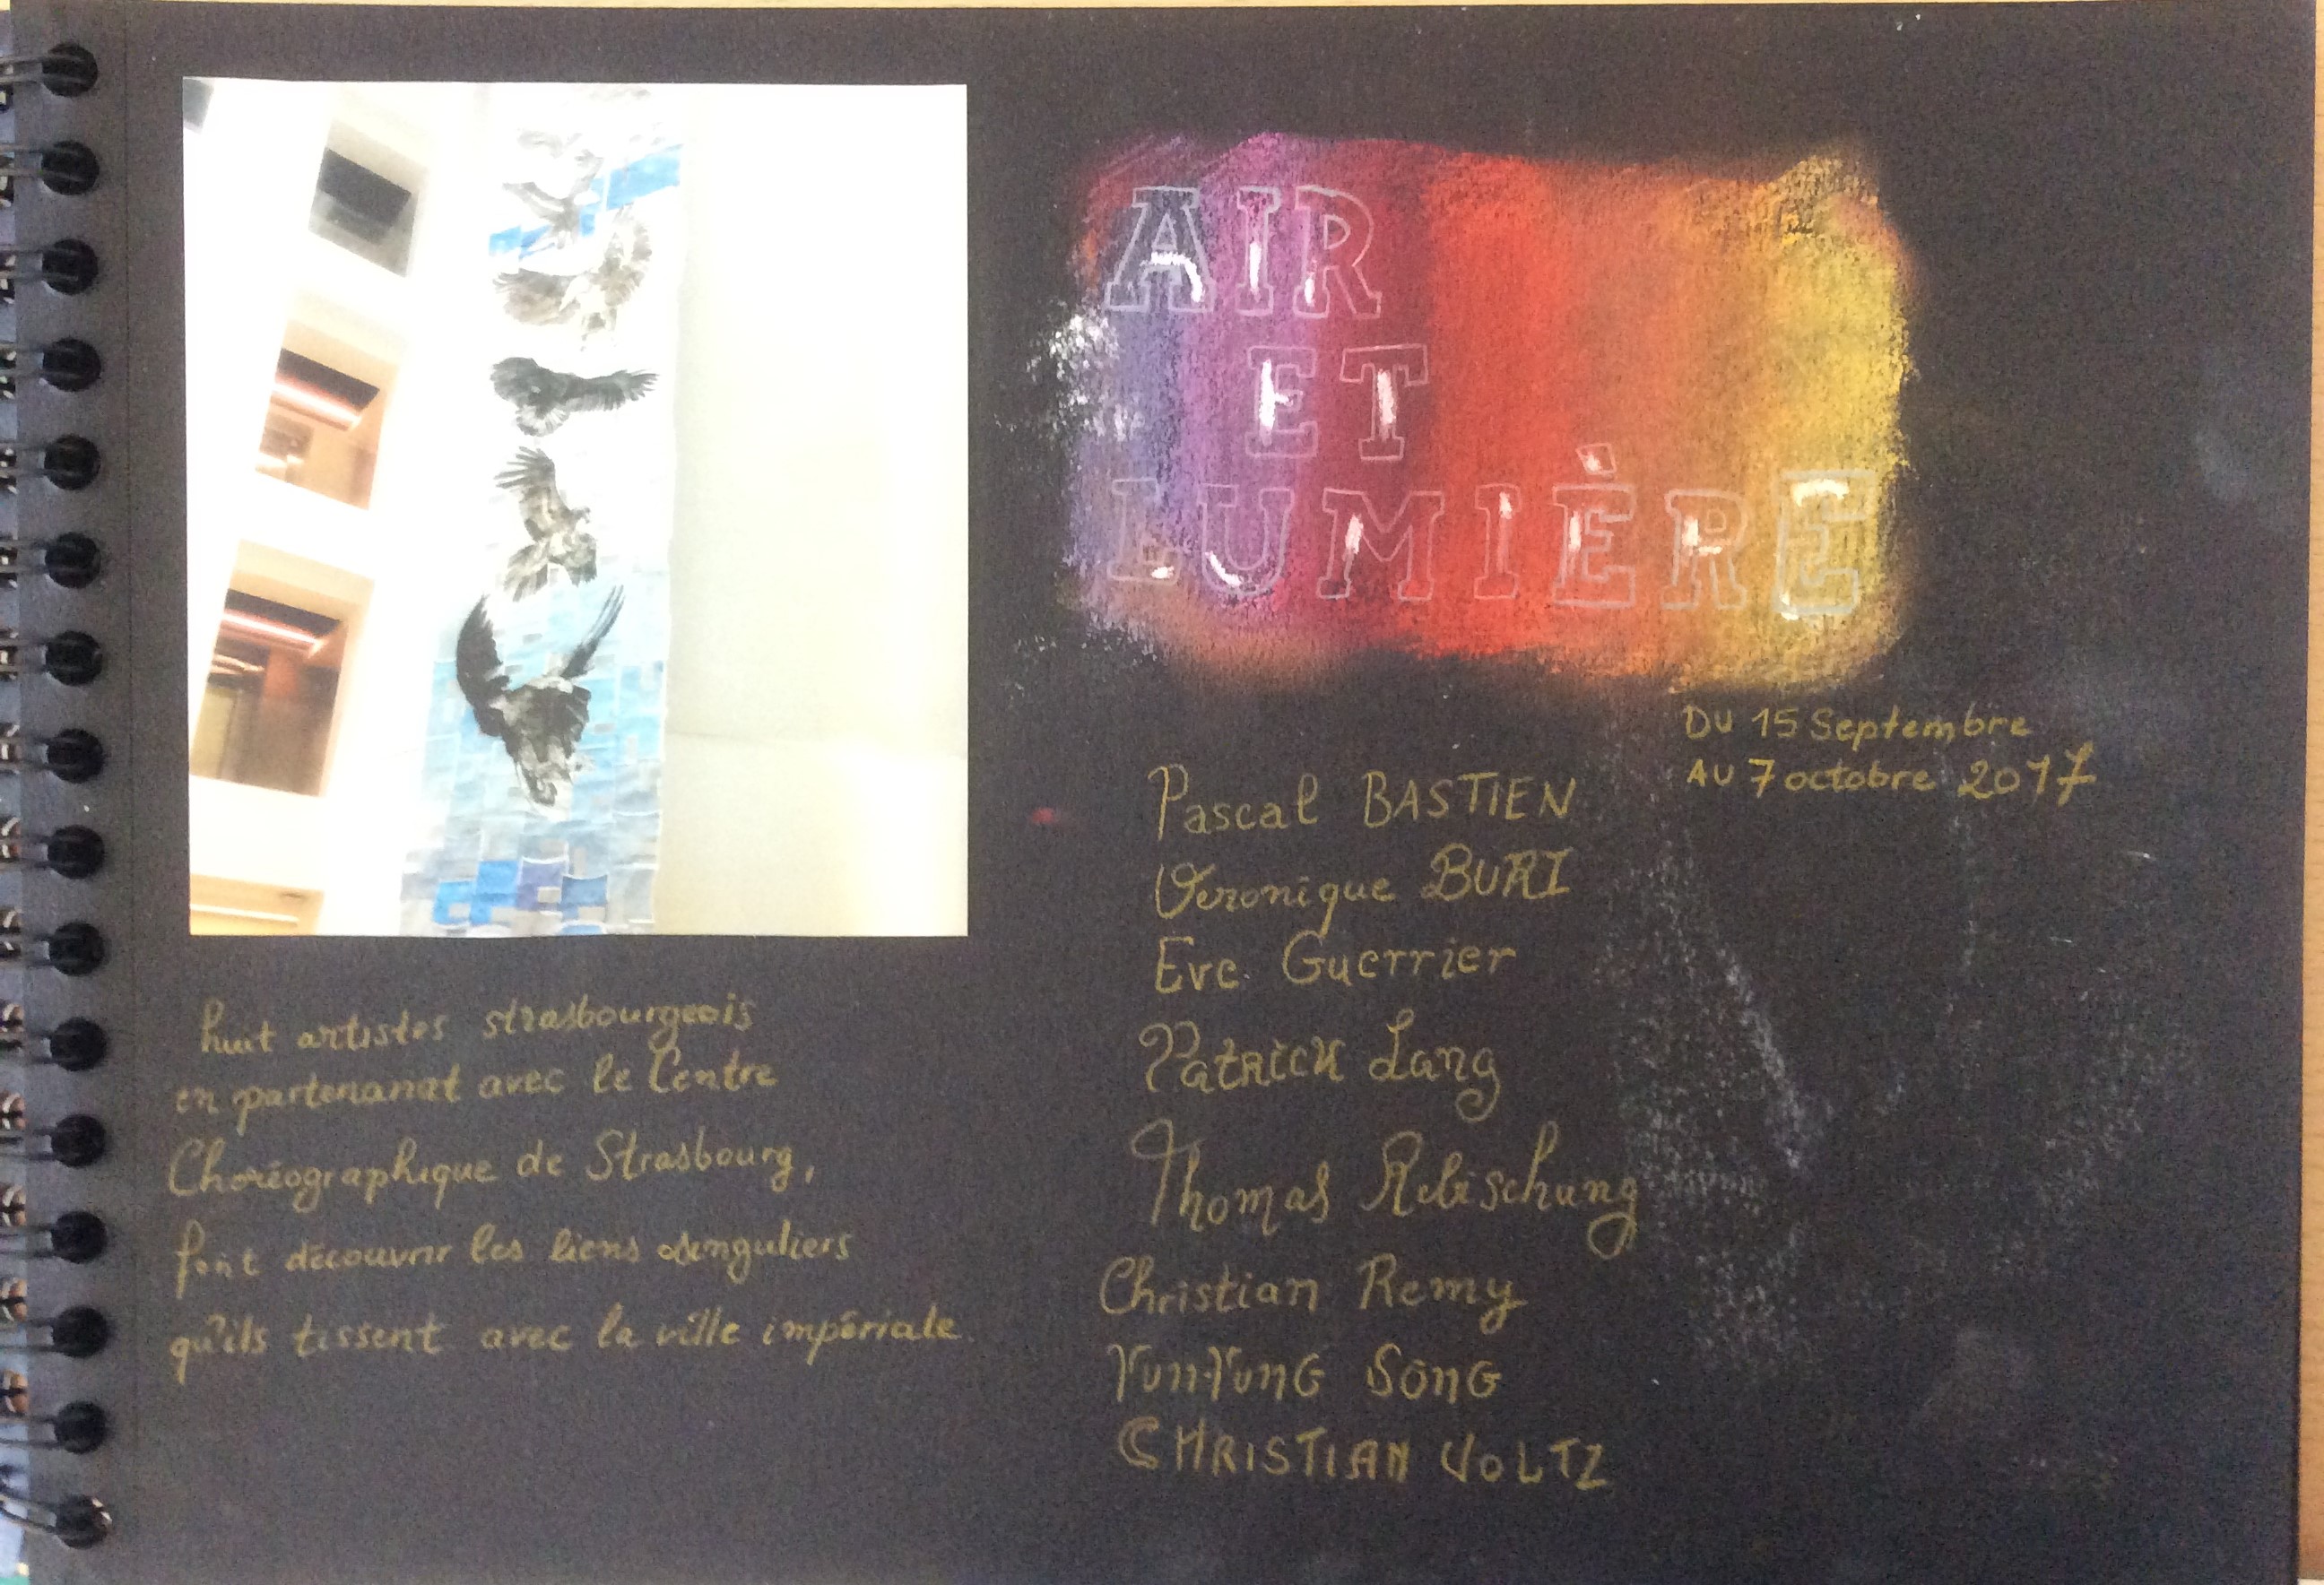 AIR
ET
LUMIÈRE
DU 15 Septembre
AU 7 octobre 2017
Pascal BASTIEN
Veronique BURI
Eve Guerrier
Patrick Lang
Thomas Rebischung
Christian Remy
YunYung Song
CHRISTIAN VOLTZ
huit artistes strasbourgeois
en partenariat avec le Centre
Chorégraphique de Strasbourg,
font découvrir les liens singuliers
qu'ils tissent avec la ville impériale.